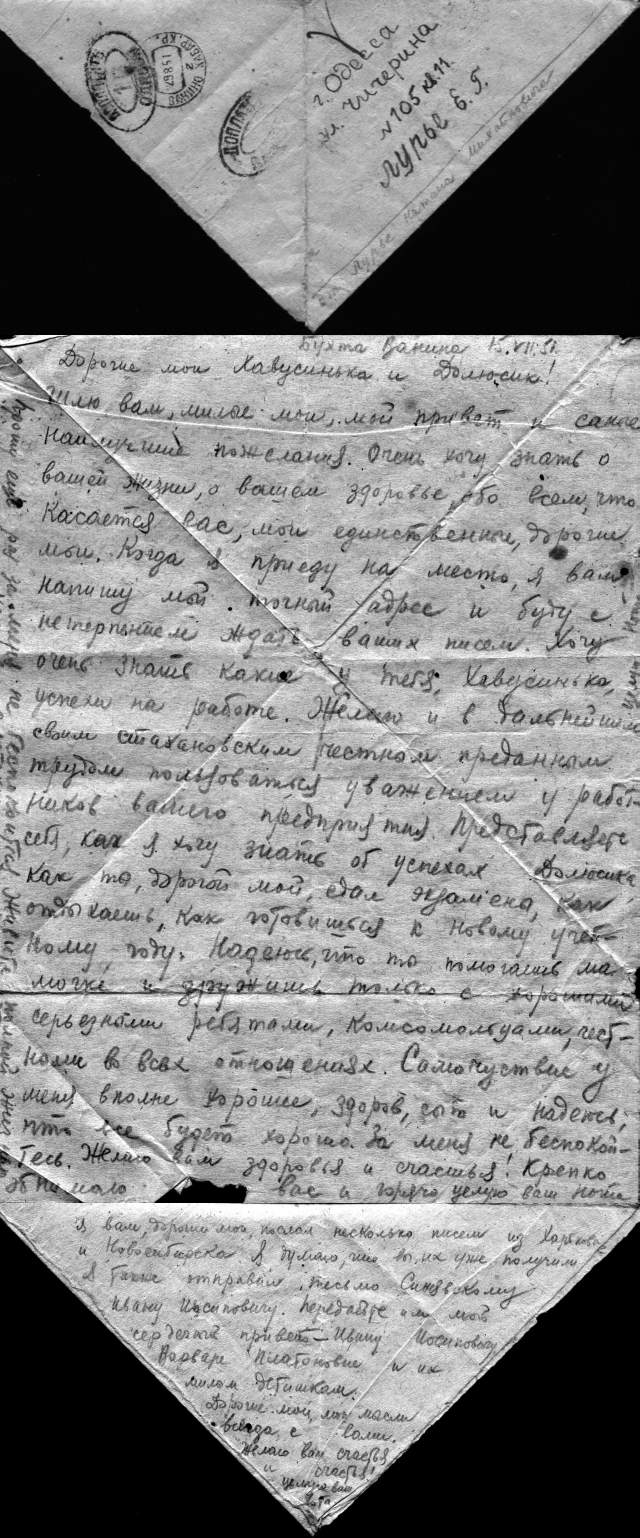 г. Одесса
ул. Чичерина
№ 105 кв. 11.
Лурье Б. Г.
Лурье Натана Михайловича
ДОПЛАТ
Бухта Ванина 15.VII.51.
Дорогие мои Хавусинька и Долюсик!
Шлю вам, милые мои, мой привет и самые
наилучшие пожелания. Очень хочу знать о
вашей жизни, о вашем здоровье, обо всем, что
касается вас, мои единственные, дорогие
мои. Когда я приеду на место, я вам
напишу мой точный адрес и буду с
нетерпением ждать ваших писем. Хочу
очень знать какие у тебя, Хавусинька,
успехи на работе. Желаю и в дальнейшем
своим стахановским честным преданным
трудом пользоваться уважением у работ-
ников вашего предприятия. Представляете
себе, как я хочу знать об успехах Долюсика,
как ты, дорогой мой, сдал экзамены, как
отдыхаешь, как готовишься к новому учеб-
ному году. Надеюсь, что ты помогаешь ма-
мочке и дружишь только с хорошими
серьезными ребятами, комсомольцами, чест-
ными во всех отношениях. Самочуствие у
меня вполне хорошее, здоров, сыт и надеюсь,
что все будет хорошо. За меня не беспокой-
тесь. Желаю вам здоровья и счастья! Крепко
вас и горячо целую ваш Нота
Я вам, дорогие мои, послал несколько писем из Харькова
и Новосибирска. Я думаю, что вы их уже получили
Я также отправил письмо Синявскому
Ивану Иосиповичу. Передайте им мой
сердечный привет – Ивану Иосиповичу
Варваре Платоновне и их
милым детишкам.
Дорогие мои, мои мысли
всегда с вами.
Желаю вам счастья
и счастья!
целую вас
Нота